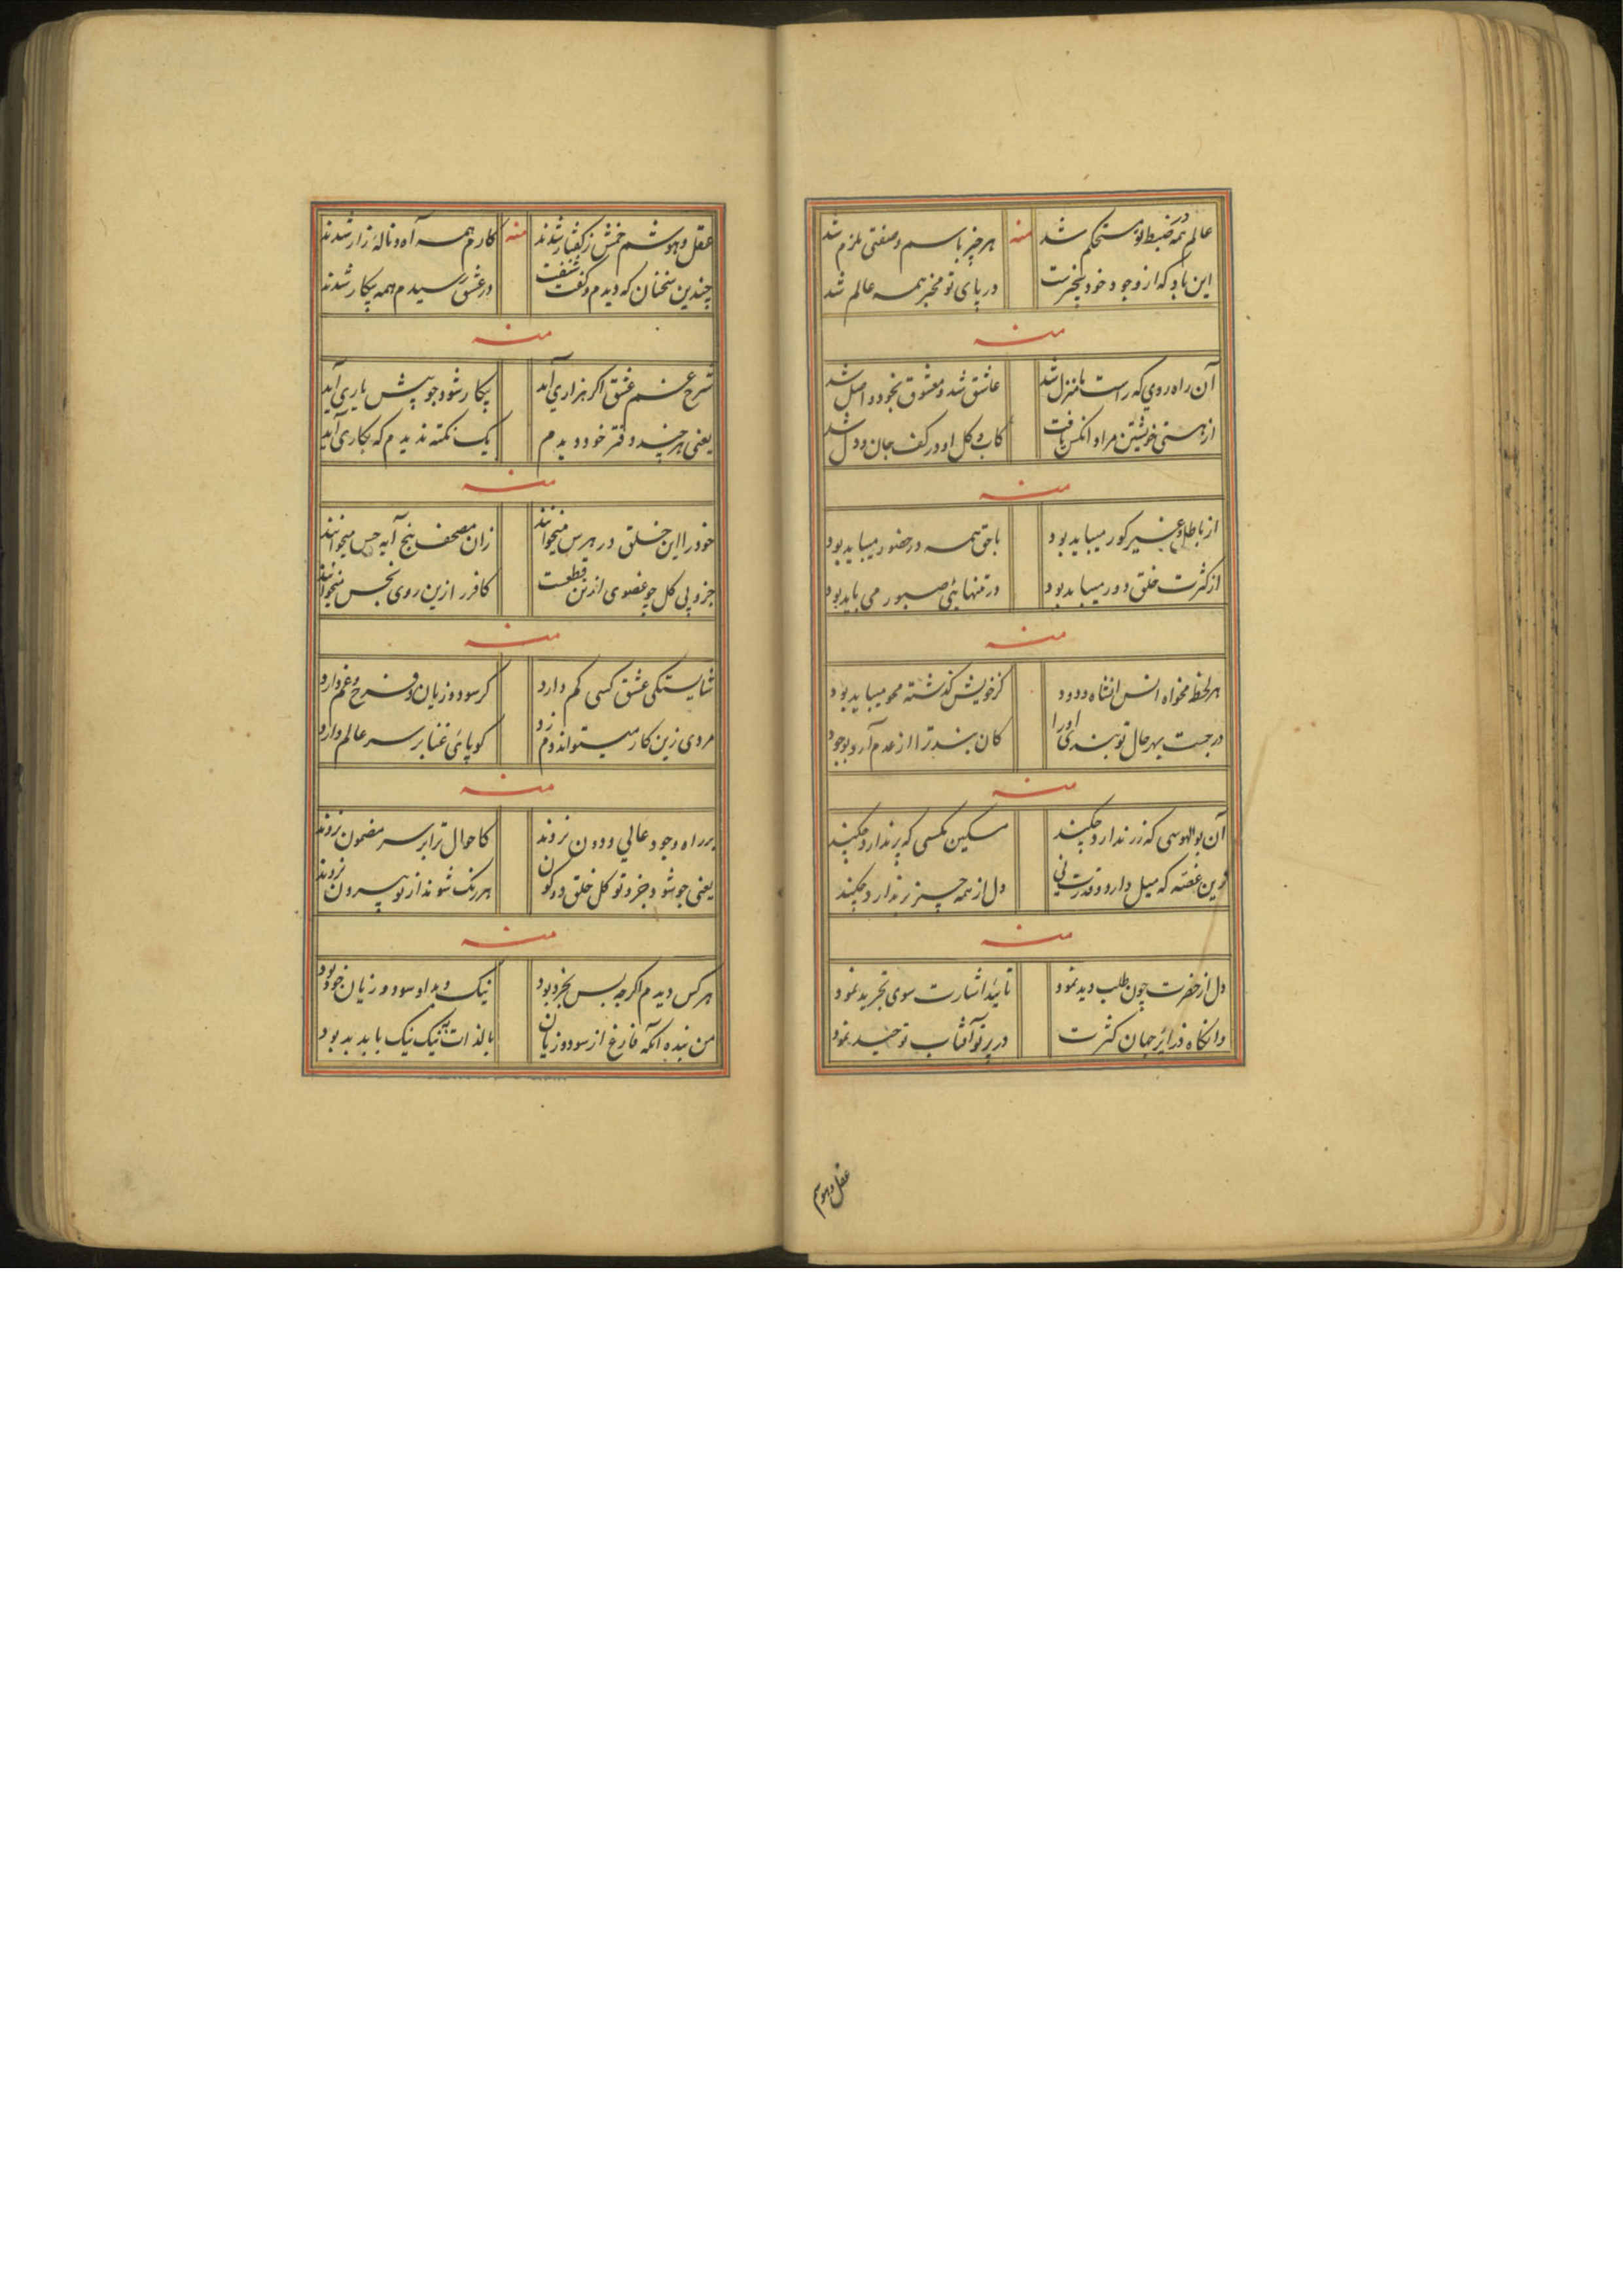 عالم همه ضبط تو مستحکم شد منه هر چیز باسم و صفتی ملزم شد
این باد که از وجود خود بیخبرست در پای تو مخبر همه عالم شد
منه
آن راه روی که راست با منزل شد عاشق شد و معشوق بخود واصل شد
از هستی خویشتن مراد آنکس یافت کاب و گل او در کف جان و دل شد
منه
از باطل و غیر کور میباید بود با حق همه در حضور میباید بود
از کثرت خلق دور میباید بود در تنهائی صبور می باید بود
منه
هر لحظه مخواه انس کز خویش گذشته محو میباید بود
در جست بهر حال تو بندگی او را کان بند ترا از عدم آرد بوجود
منه
آن بوالهوسی که زر ندارد چکند مسکین مگسی که پر ندارد چکند
وین غصه که میل دارد و قدرت نی دل از همه چیز بر ندارد چکند
منه
دل از حضرت چون طلب دید نمود تایید اشارت سوی تجرید نمود
وانگاه ذرایر جهان کثرت در پرتو آفتاب توحید نمود
عقل و هوشم
عقل و هوشم خمش ز گفتار شدند منه کارم همه آه و ناله زار شدند
چندین سخنان که دیدم و گفت شنفت در عشق رسیدم همه بیکار شدند
منه
شرح غم عشق اگر هزاری آید بیکار شود چو پیش یاری آید
یعنی هر چند دفتر خود دیدم یک نکته ندیدم که بکاری آید
منه
خود را این خلق در هرس میخوانند زان مصحف پنج آیه حس میخوانند
جزو بی کل چو عضوی از تن قطعست کافر را زین روی نجس میخوانند
منه
شایستگی عشق کسی کم دارد کز سود و زیان فرح و غم دارد
مردی زین کار میتواند دم زد کو پای غنا بر سر عالم دارد
منه
بر راه وجود عالی و دون نروند کاحوال ترا بر سر مضمون نروند
یعنی چو شود جزو تو کل خلق دو کون هر رنگ شوند از تو بیرون نروند
منه
هر کس دیدم اگر چه بس بخرد بود نیک و بد او سود و زیان خود بود
من بنده آنکه فارغ از سود و زیان بالذات به نیک نیک با بد بد بود